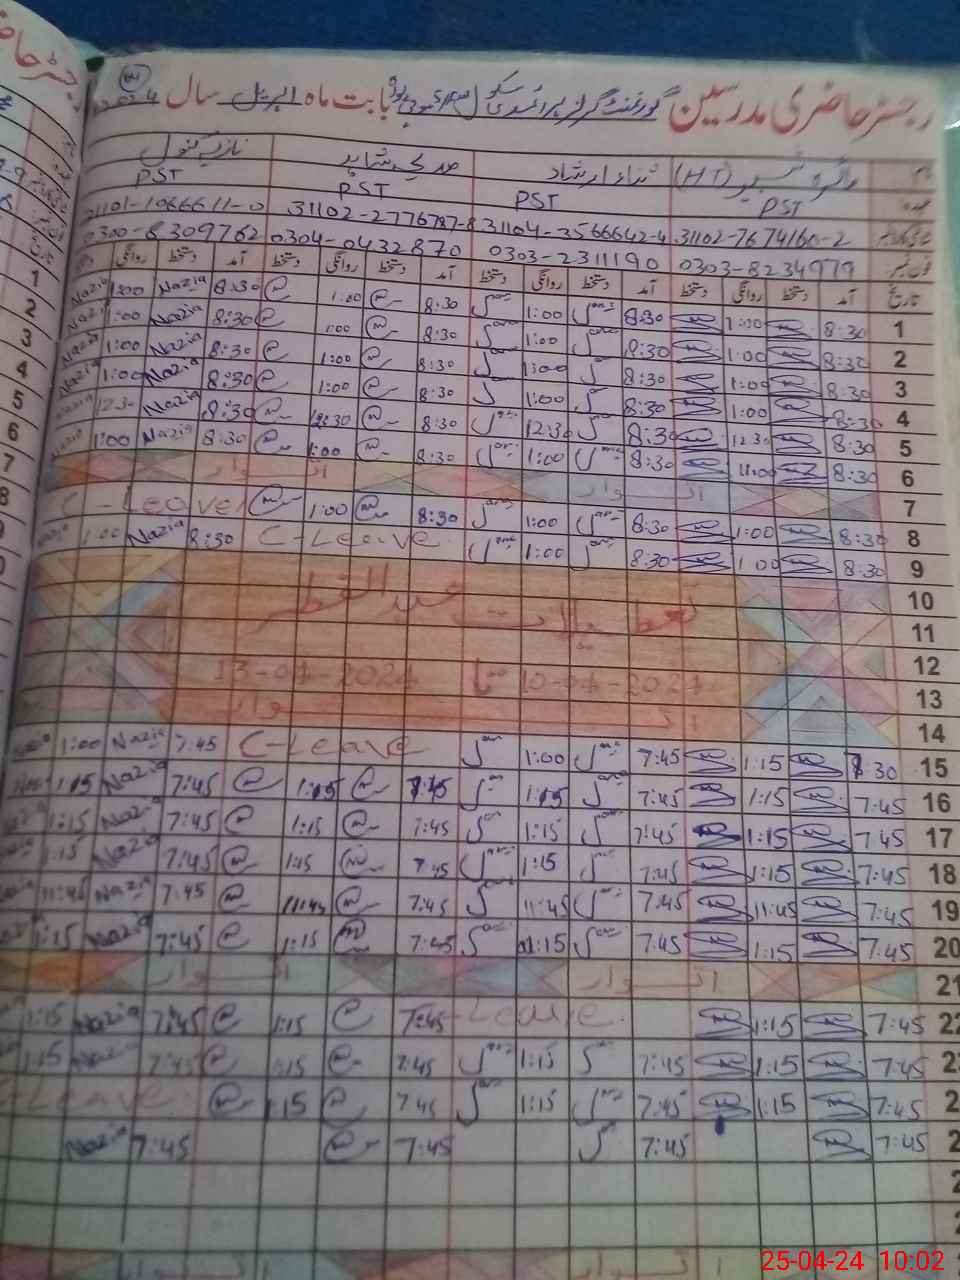 رجسٹر حاضری مدرسین گورنمنٹ گرلز پرائمری سکول بابت ماہ اپریل سال 2024
نام (HT) ثناء ارشاد صدیحہ شاہد نازیہ کنول
عہدہ PST PST PST PST
31102-7674160-2 31104-3566642-4 31102-2776787-8 31101-1066611-0
فون نمبر 0303-8234979 0303-2311190 0304-0432870 0300-8309762
تاریخ آمد دستخط روانگی دستخط آمد دستخط روانگی دستخط آمد دستخط روانگی دستخط آمد دستخط روانگی
1 8:30 1:00 8:30 1:00 8:30 1:00 8:30 Nazia 1:00 Nazia
2 8:30 1:00 8:30 1:00 8:30 1:00 8:30 Nazia 1:00 Nazia
3 8:30 1:00 8:30 1:00 8:30 1:00 8:30 Nazia 1:00 Nazia
4 8:30 1:00 8:30 1:00 8:30 1:00 8:30 Nazia 1:00 Nazia
5 8:30 12:30 8:30 12:30 8:30 12:30 8:30 Nazia 12:30 Nazia
6 8:30 1:00 8:30 1:00 8:30 1:00 8:30 Nazia 1:00 Nazia
7 اتوار اتوار
8 8:30 1:00 8:30 1:00 8:30 1:00 C-Leave
9 8:30 1:00 8:30 1:00 C-Leave 8:30 Nazia 1:00 Nazia
10
11 تعطیلات عیدالفطر
12
13 10-04-2024 تا 13-04-2024
14 اتوار
15 8:30 1:15 7:45 1:00 C-Leave 7:45 Nazia 1:00 Nazia
16 7:45 1:15 7:45 1:15 7:45 1:15 7:45 Nazia 1:15
17 7:45 1:15 7:45 1:15 7:45 1:15 7:45 Nazia 1:15
18 7:45 1:15 7:45 1:15 7:45 1:15 7:45 Nazia 1:15
19 7:45 11:45 7:45 11:45 7:45 11:45 7:45 Nazia 11:45
20 7:45 1:15 7:45 1:15 7:45 1:15 7:45 Nazia 1:15
21 اتوار اتوار
22 7:45 1:15 C-Leave 7:45 1:15 7:45 Nazia 1:15
7:45 1:15 7:45 1:15 7:45 1:15 7:45 Nazia 1:15
7:45 1:15 7:45 1:15 7:45 1:15 C-Leave
7:45 7:45 7:45 7:45 Nazia
اتوار اتوار
25-04-24 10:02